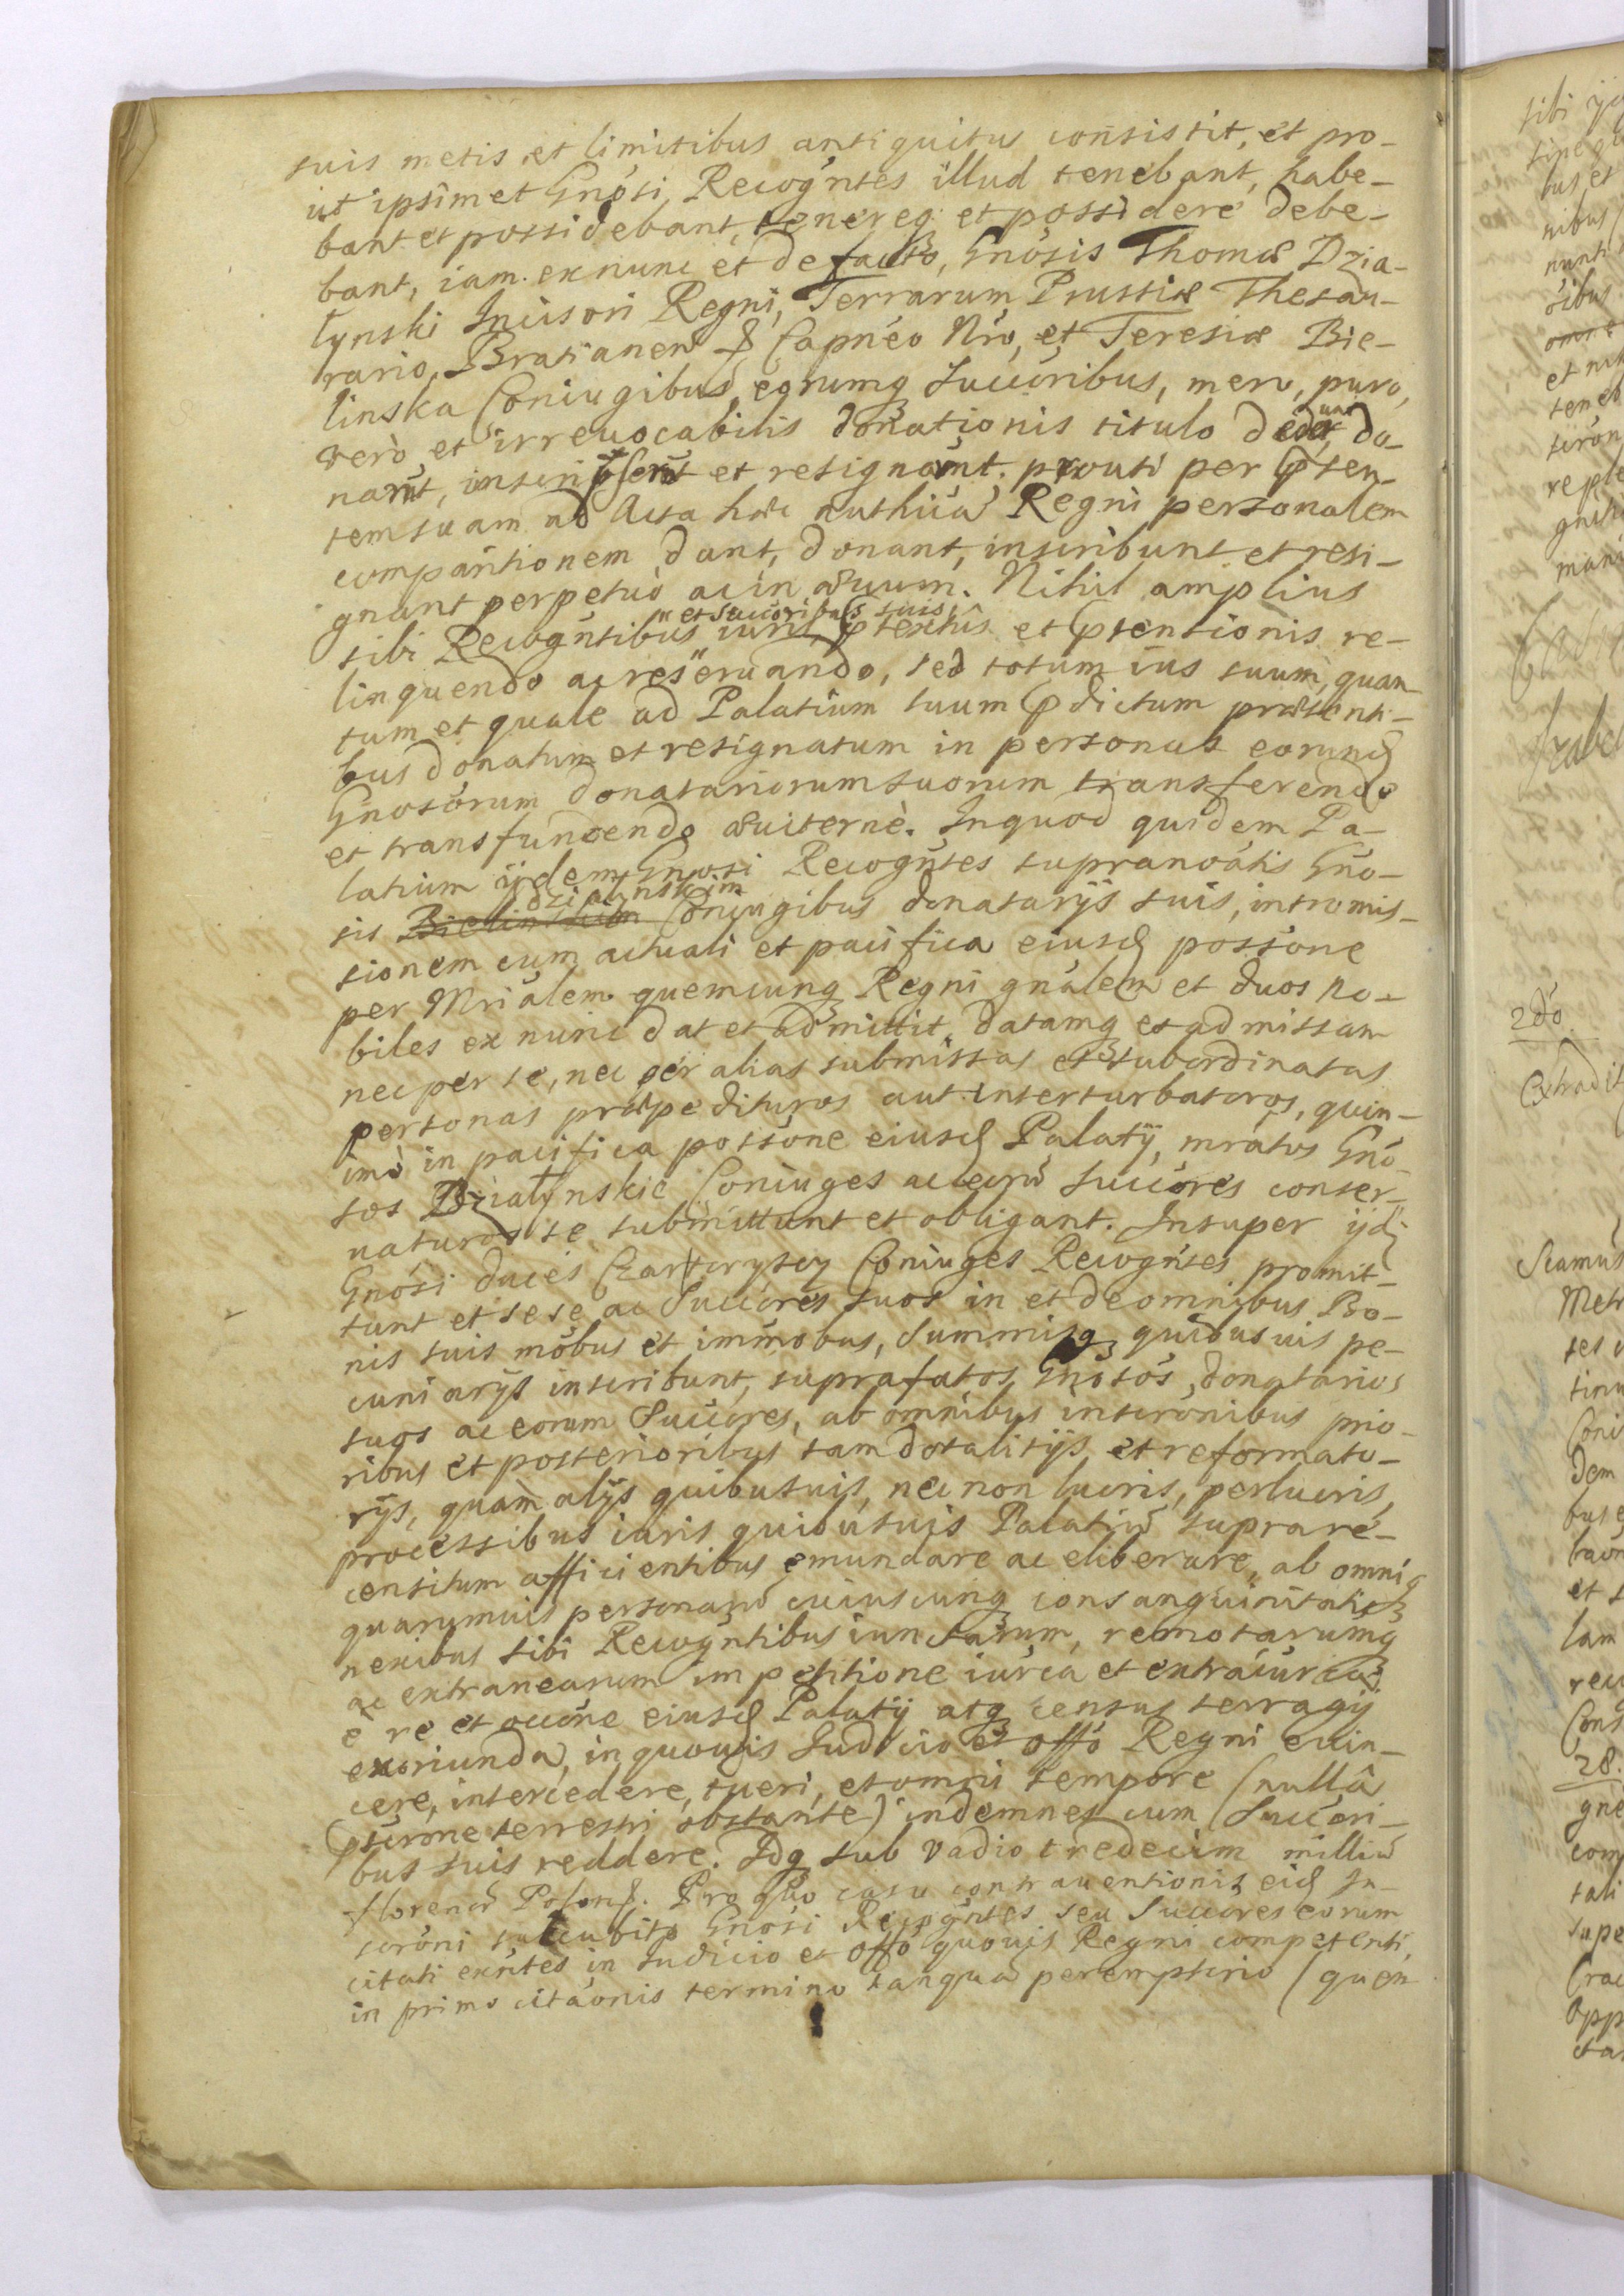 suis metis et limitibus antiquitus consistit, et pro-
ut ipsimet Gnosi Recogntes illud tenebant, habe-
bant et possidebant, tenereq et possidere debe-
bant, iam exnunc et de facto, Gnosis Thomæ Dzia-
łynski Incisori Regni, Terrarum Prussiæ Thesau-
rario, Bratianen & Capneo Nro, et Teresiæ Bie-
linska Coniugibus, eorumq Succoribus, mero, puro,
verò et irreuocabilis donationis titulo dederunt, do-
narut, inscripserut et resignarunt. prouti per pnsen-
tem suam ad Acta hæc authica Regni personalem
comparitionem dant, donant, inscribunt et resi-
gnant perpetuò ac in æuum. Nihil amplius
sibi Recogntibus et Succoribus suis iuris ptextûs et ptentionis re-
linquendo ac reseruando, sed totum ius suum, quan-
tum et quale ad Palatium suum pdictum præsenti-
bus donatum et resignatum in personas eorund
Gnosorum donatariorum suorum transferendo
et transfundendo æuiternè. Inquod quidem Pa-
latium ijdem Gnosi Recogntes supranoatis Gno-
sis Bielinskim Działynskim Coniugibus donatarijs suis, intromis-
sionem cum actuali et pacifica eiusd possone
per Mrialem quemcunq Regni gnalem et duos no-
biles ex nunc dat et admittit, datamq et admissam
nec per se, nec per alias submissas et subordinatas
personas præpedituros aut interturbaturos, quin-
imò in pacifica possone eiusd Palatij, mratos Gno-
sos Działynskie Coniuges ac eoru Succores conser-
uaturos se submittunt et obligant. Insuper ijd
Gnosi duces Czartoryscy Coniuges Recogntes promit-
tunt et sese ac Succores suos in et de omnibus Bo-
nis suis mobus et immobus, Summisq quibusuis pe-
cuniarijs inscribunt, suprafatos Gnosos, donatarios
suos ac eorum Succores, ab omnibus inscronibus prio-
ribus et posterioribus tam dotalitijs et reformato-
rijs, quàm alijs quibusuis, nec non lucris, perlucris,
processibus iuris quibusuis Palatiu suprare-
censitum afficientibus emundare ac eliberare, ab omniq
quarumuis personaru cuiuscunq consanguinitatis
nexibus sibi Recogntibus iunctarum, remotarumq
ac extranearum impetitione iurea et extraiurea
è re et occone eiusd Palatij atq census terragij
exoriunda, in quouis Iudicio et offo Regni euin-
cere, intercedere, tueri, et omni tempore (nullâ
pscrone terrestri obstante) indemnes cum Succori-
bus suis reddere. Idq sub vadio tredecim milliu
florenor Polon. Pro quo casu contrauentionis eid In-
scroni succubito Gnosi Recogntes seu Succores eorum
citati exntes in Iudicio et Offo quouis Regni competenti,
in primo citaonis termino tanqua peremptorio (quem